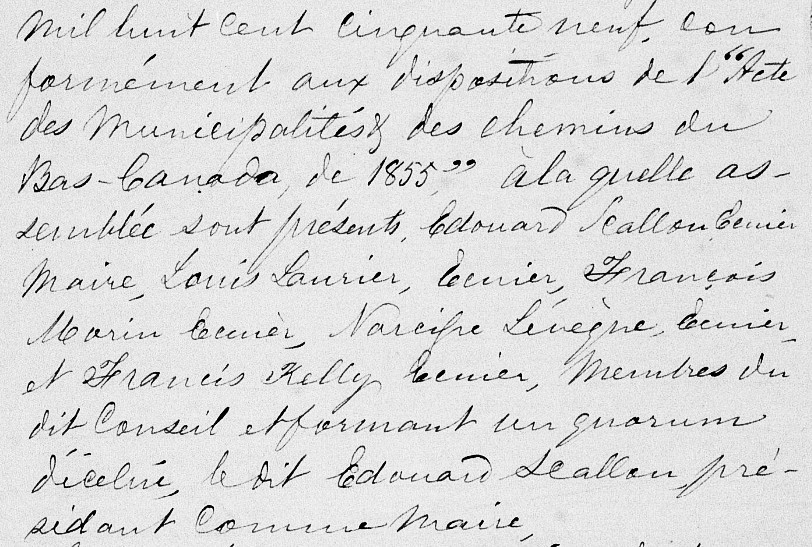 mil huit cent cinquante neuf, con
formément aux dispositions de l'"Acte
des Municipalités & des chemins du
Bas-Canada, de 1855," à la quelle as-
semblée sont présents, Edouard Scallon Ecuier
Maire, Louis Laurier, Ecuier, François
Morin Ecuier, Narcisse Lévêque, Ecuier,
et Francis Kelly Ecuier, Membres du
dit Conseil et formant un quorum
le dit Edouard Scallon pré-
sidant comme Maire,